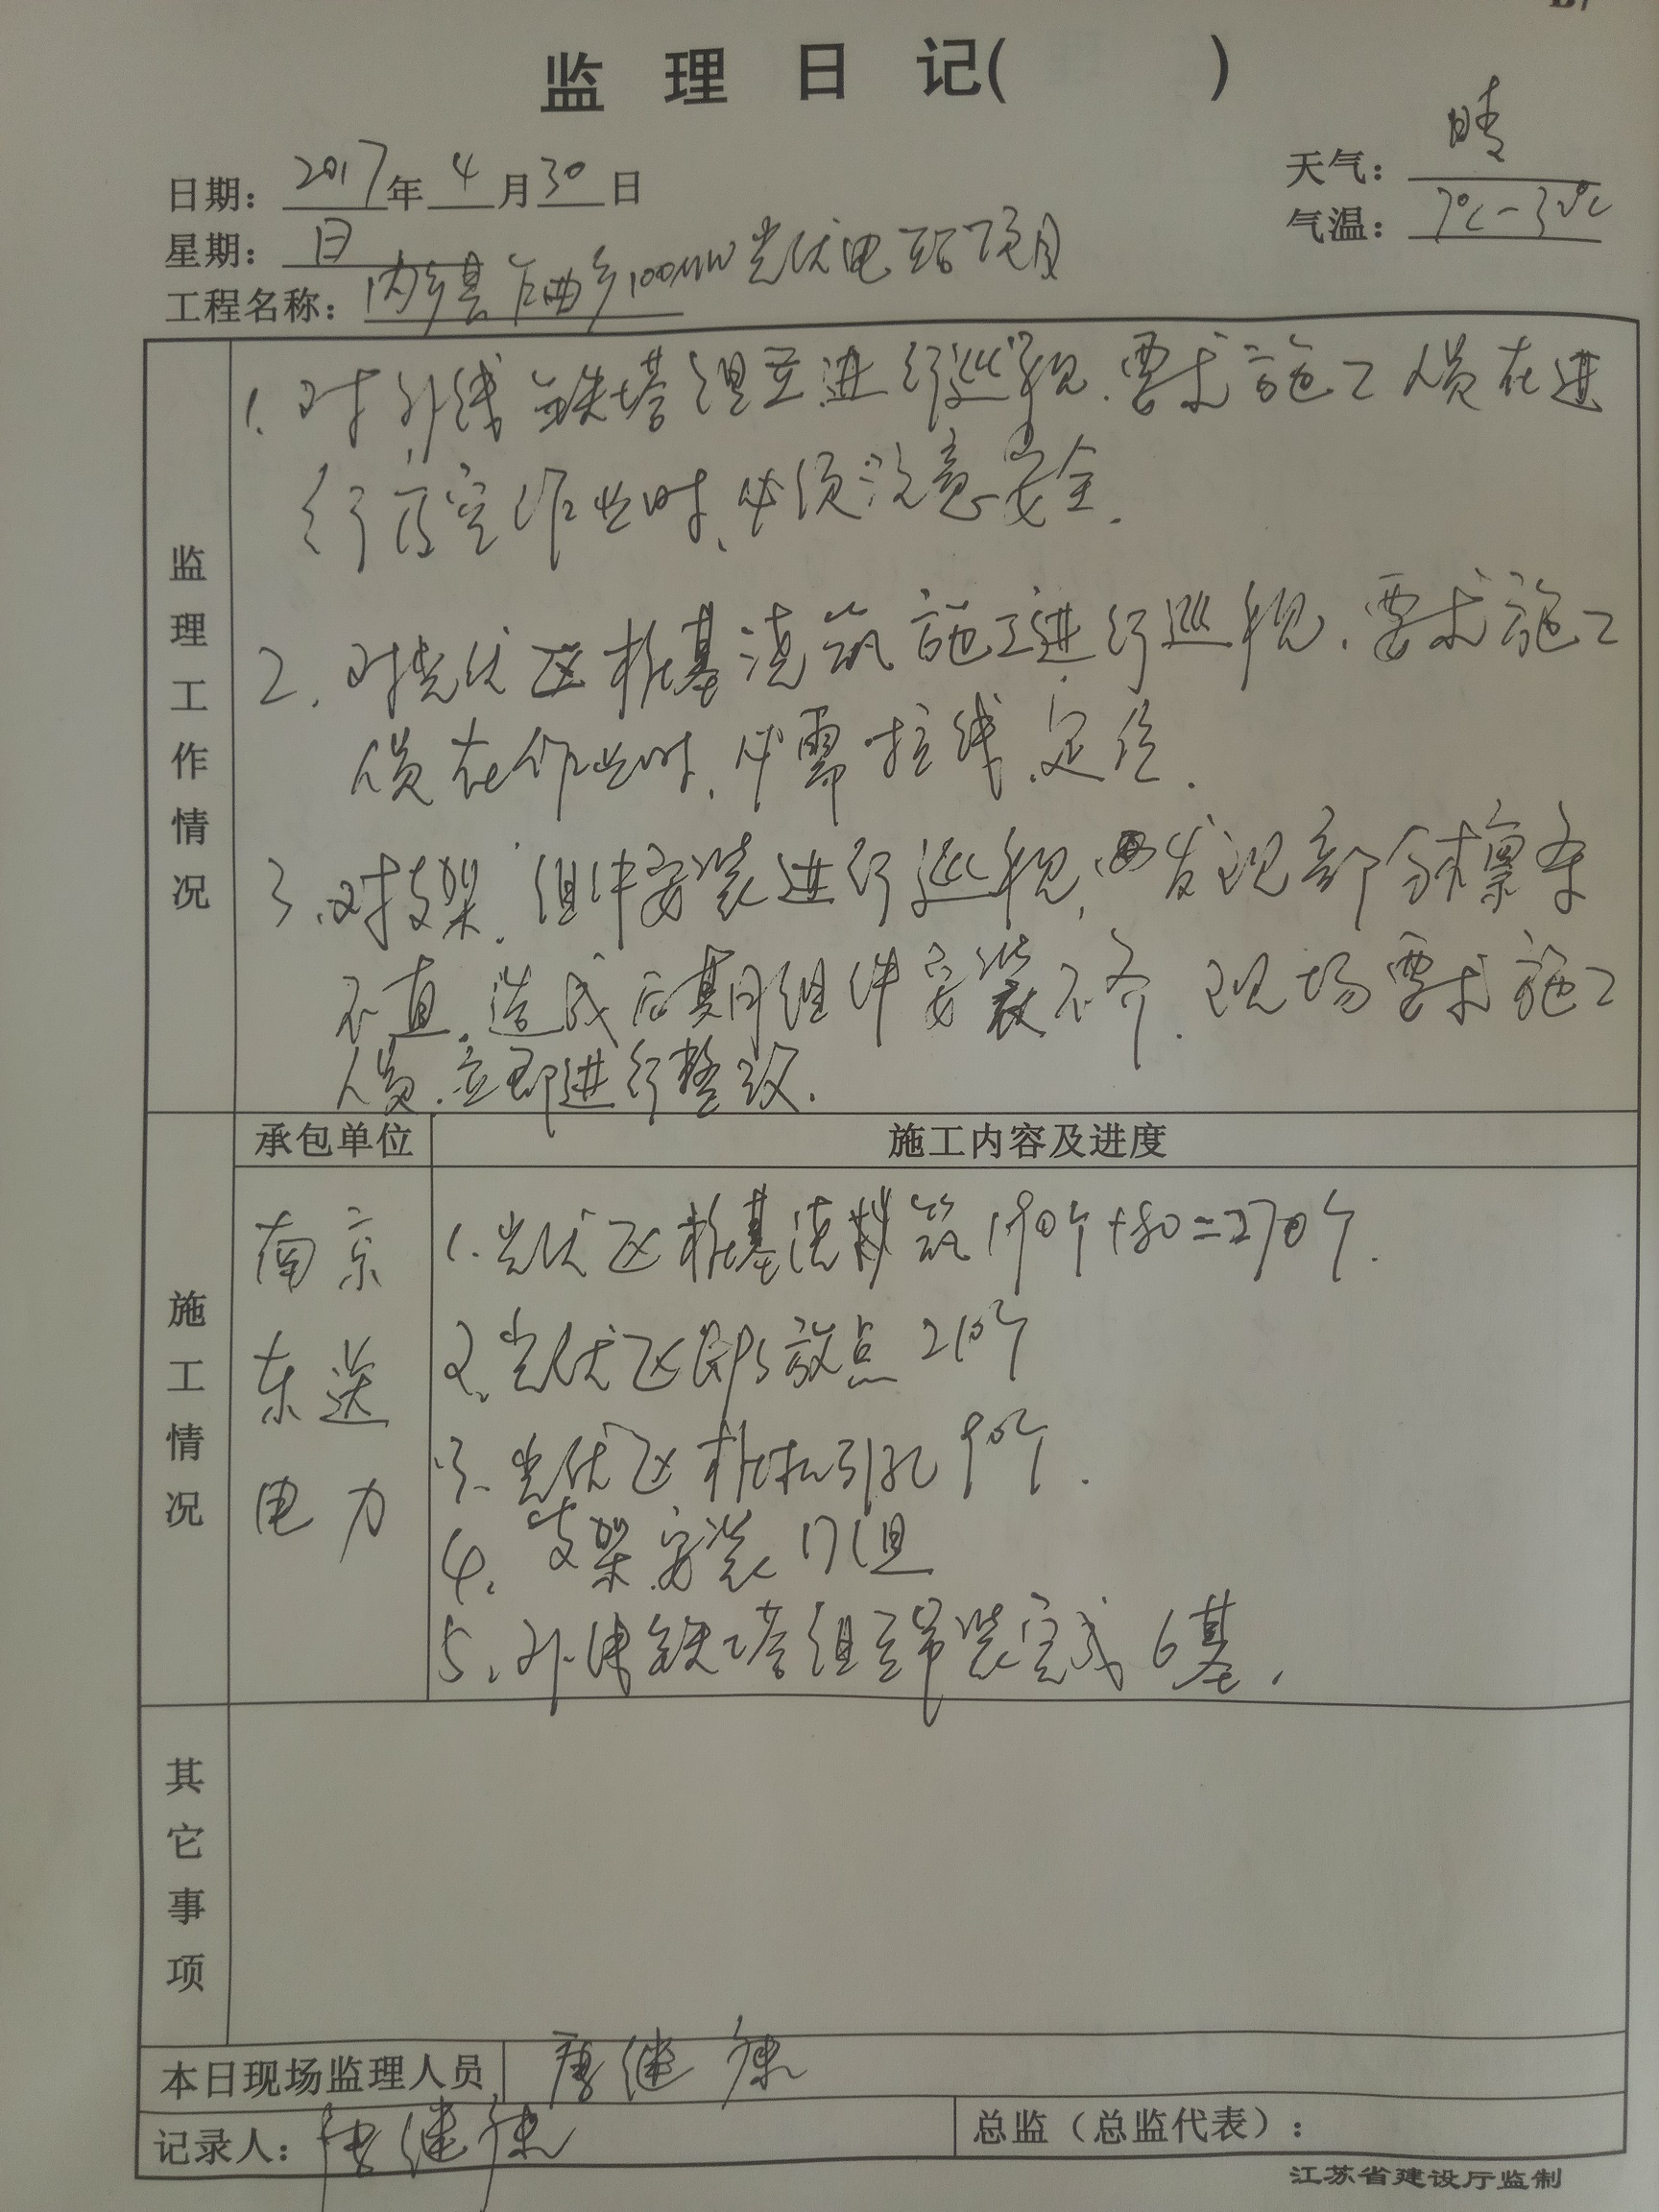 监理日记(　　)
日期：2017年4月30日
天气：晴
星期：日
气温：7℃-30℃
工程名称：内乡县乍曲乡100MW光伏电站项目
监理工作情况
1.对外线铁塔组立进行巡视.要求施工人员在进
行高空作业时,必须注意安全.
2.对光伏区桩基浇筑施工进行巡视.要求施工
人员在作业时,必需拉线定位.
3.对支架.组件安装进行巡视,发现部分檩条
不直.造成后期组件安装不齐.现场要求施工
人员.立即进行整改.
承包单位
施工内容及进度
施工情况
南京
东送
电力
1.光伏区桩基浇筑190个+80=270个.
2.光伏区GPS放点210个
3.光伏区桩机引孔90个.
4.支架安装17组
5.外线铁塔组立吊装完成6基.
其它事项
本日现场监理人员
唐继康
记录人：唐继康
总监（总监代表）：
江苏省建设厅监制